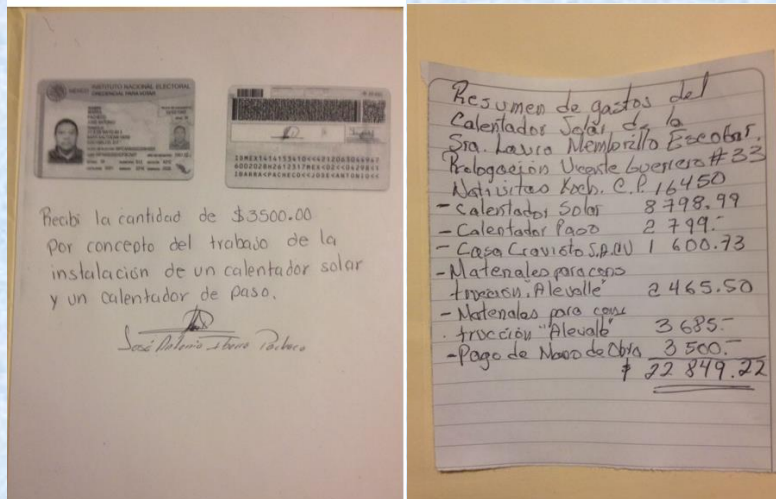 MÉXICO INSTITUTO NACIONAL ELECTORAL
CREDENCIAL PARA VOTAR
Recibi la cantidad de $3500.00
Por concepto del trabajo de la
instalación de un calentador solar
y un calentador de paso.
José Antonio Ibarra Pacheco
Resumen de gastos del
Calentador Solar de la
Sra. Laura Membrillo Escobar.
Prologación Vicente Guerrero # 33
Nativitas Xoch. C.P. 16450
- Calentador Solar 8 798.99
- Calentador Paso 2 799.-
- Casa Cravioto S.A.CV 1 600.73
- Materiales para cons
trucción "Alevalle" 2 465.50
- Materiales para cons
trucción "Alevalle" 3 685.-
- Pago de Mano de Obra 3 500.-
$ 22 849.22